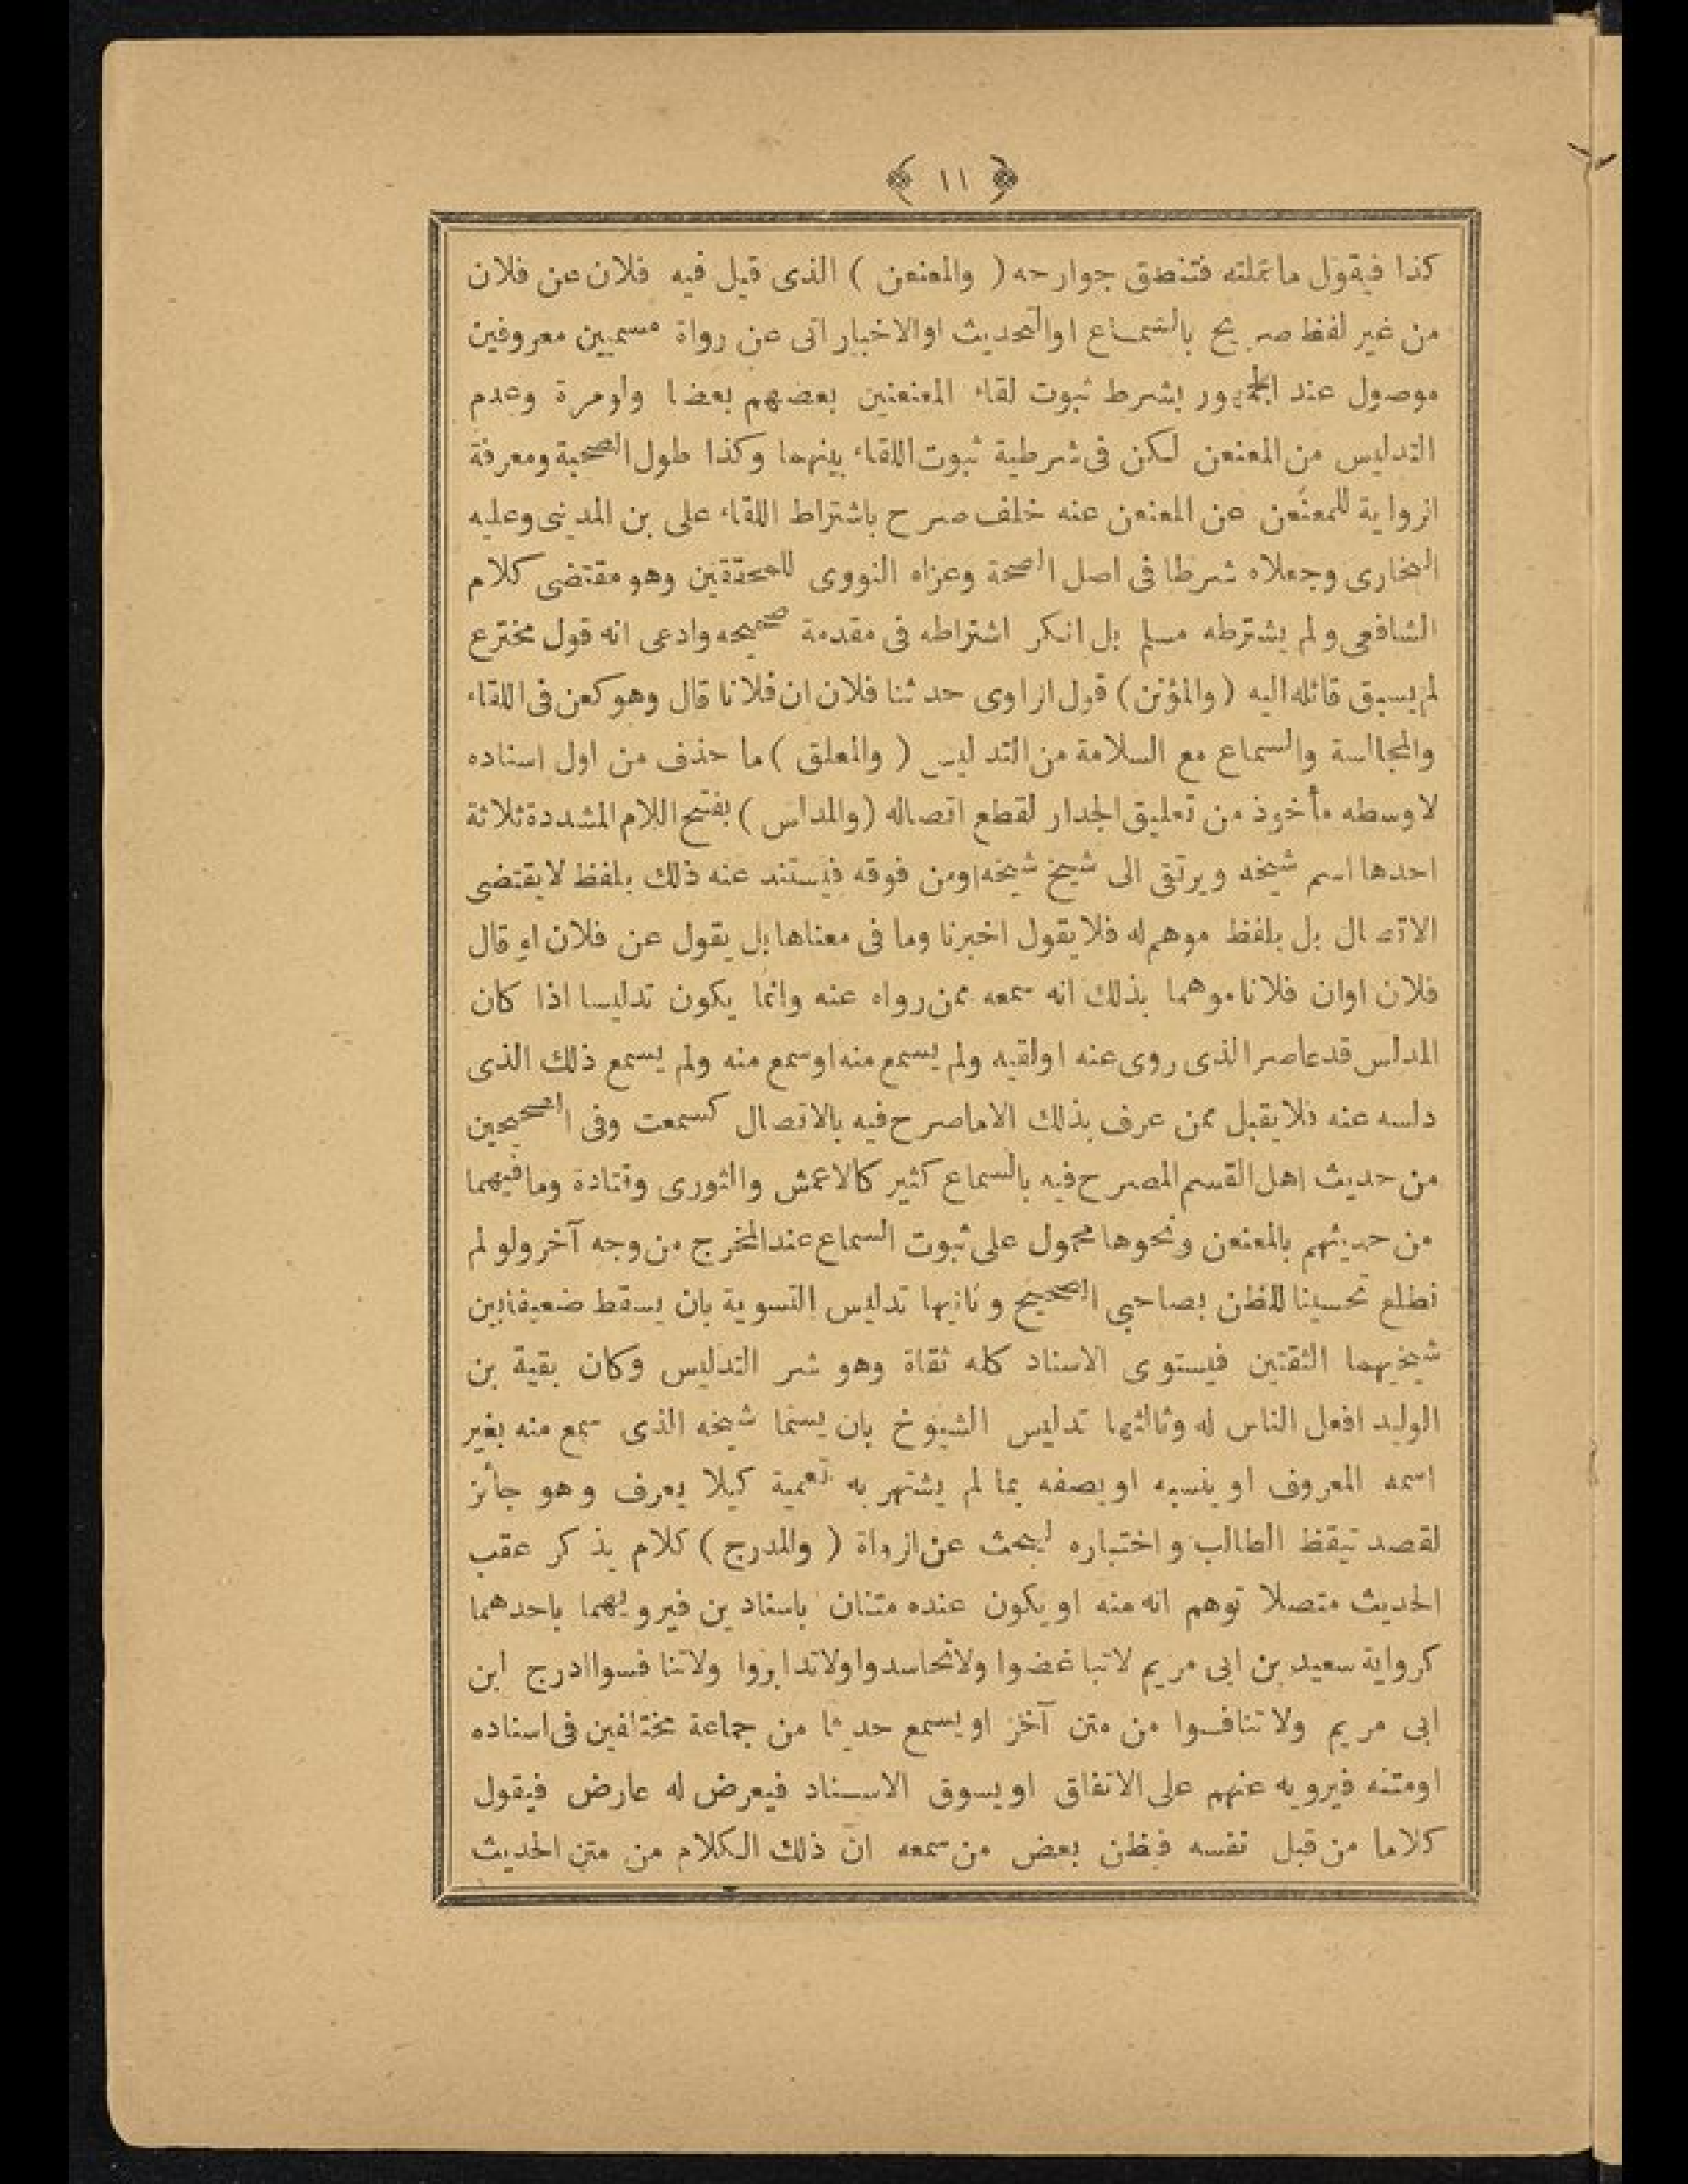 ﴿ ١١ ﴾
كذا فيقول ما عملته فتنطق جوارحه ( والمعنعن ) الذى قيل فيه فلان عن فلان
من غير لفظ صريح بالسماع اوالتحديث اوالاخبار اتى عن رواة مسميين معروفين
موصول عند الجمهور بشرط ثبوت لقاء المعنعنين بعضهم بعضا ولومرة وعدم
التدليس من المعنعن لكن فى شرطية ثبوت اللقاء بينهما وكذا طول الصحبة ومعرفة
الرواية للمعنعن عن المعنعن عنه خلف صرح باشتراط اللقاء على بن المدينى وعليه
البخارى وجعلاه شرطا فى اصل الصحة وعزاه النووى للمحققين وهو مقتضى كلام
الشافعى ولم يشترطه مسلم بل انكر اشتراطه فى مقدمة صحيحه وادعى انه قول مخترع
لم يسبق قائله اليه ( والمؤنن ) قول الراوى حدثنا فلان ان فلانا قال وهو كعن فى اللقاء
والمجالسة والسماع مع السلامة من التدليس ( والمعلق ) ما حذف من اول اسناده
لاوسطه مأخوذ من تعليق الجدار لقطع اتصاله ( والمدلس ) بفتح اللام المشددة ثلاثة
احدها اسم شيخه ويرتقى الى شيخ شيخه اومن فوقه فيسند عنه ذلك بلفظ لايقتضى
الاتصال بل بلفظ موهم له فلايقول اخبرنا وما فى معناها بل يقول عن فلان او قال
فلان اوان فلانا موهما بذلك انه سمعه ممن رواه عنه وانما يكون تدليسا اذا كان
المدلس قد عاصر الذى روى عنه اولقيه ولم يسمع منه اوسمع منه ولم يسمع ذلك الذى
دلسه عنه فلايقبل ممن عرف بذلك الاماصرح فيه بالاتصال كسمعت وفى الصحيحين
من حديث اهل القسم المصرح فيه بالسماع كثير كالاعمش والثورى وقتادة وما فيهما
من حديثهم بالمعنعن ونحوها محمول على ثبوت السماع عند المخرج من وجه آخر ولو لم
نطلع تحسينا للظن بصاحبى الصحيح وثانيها تدليس التسوية بان يسقط ضعيفا بين
شيخيهما الثقتين فيستوى الاسناد كله ثقاة وهو شر التدليس وكان بقية بن
الوليد افعل الناس له وثالثها تدليس الشيوخ بان يسما شيخه الذى سمع منه بغير
اسمه المعروف او ينسبه او يصفه بما لم يشتهر به تعمية كيلا يعرف وهو جائز
لقصد تيقظ الطالب واختباره ليبحث عن الرواة ( والمدرج ) كلام يذكر عقب
الحديث متصلا توهم انه منه او يكون عنده متنان باسنادين فيرويهما باحدهما
كرواية سعيد بن ابى مريم لاتباغضوا ولاتحاسدوا ولاتدابروا ولاتنافسوا ادرج ابن
ابى مريم ولا تنافسوا من متن آخر او يسمع حديثا من جماعة مختلفين فى اسناده
اومتنه فيرويه عنهم على الاتفاق او يسوق الاسناد فيعرض له عارض فيقول
كلاما من قبل نفسه فيظن بعض من سمعه ان ذلك الكلام من متن الحديث